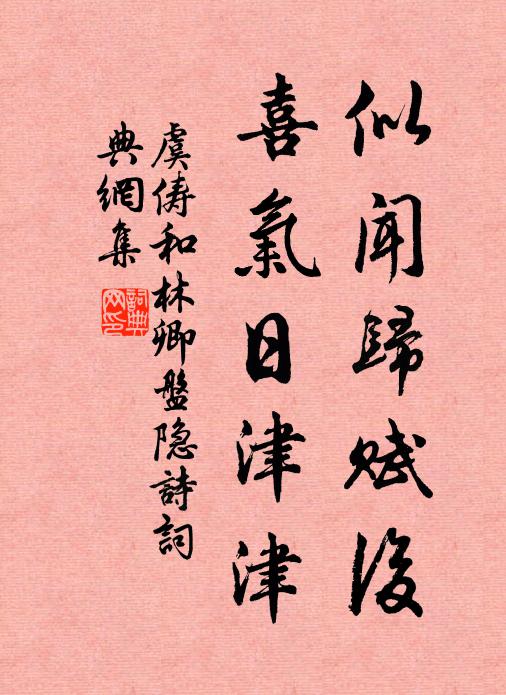 似闻歸赋後
喜氣日津津
虞俦和林卿盤隐詩詞
典網集
詞典網印